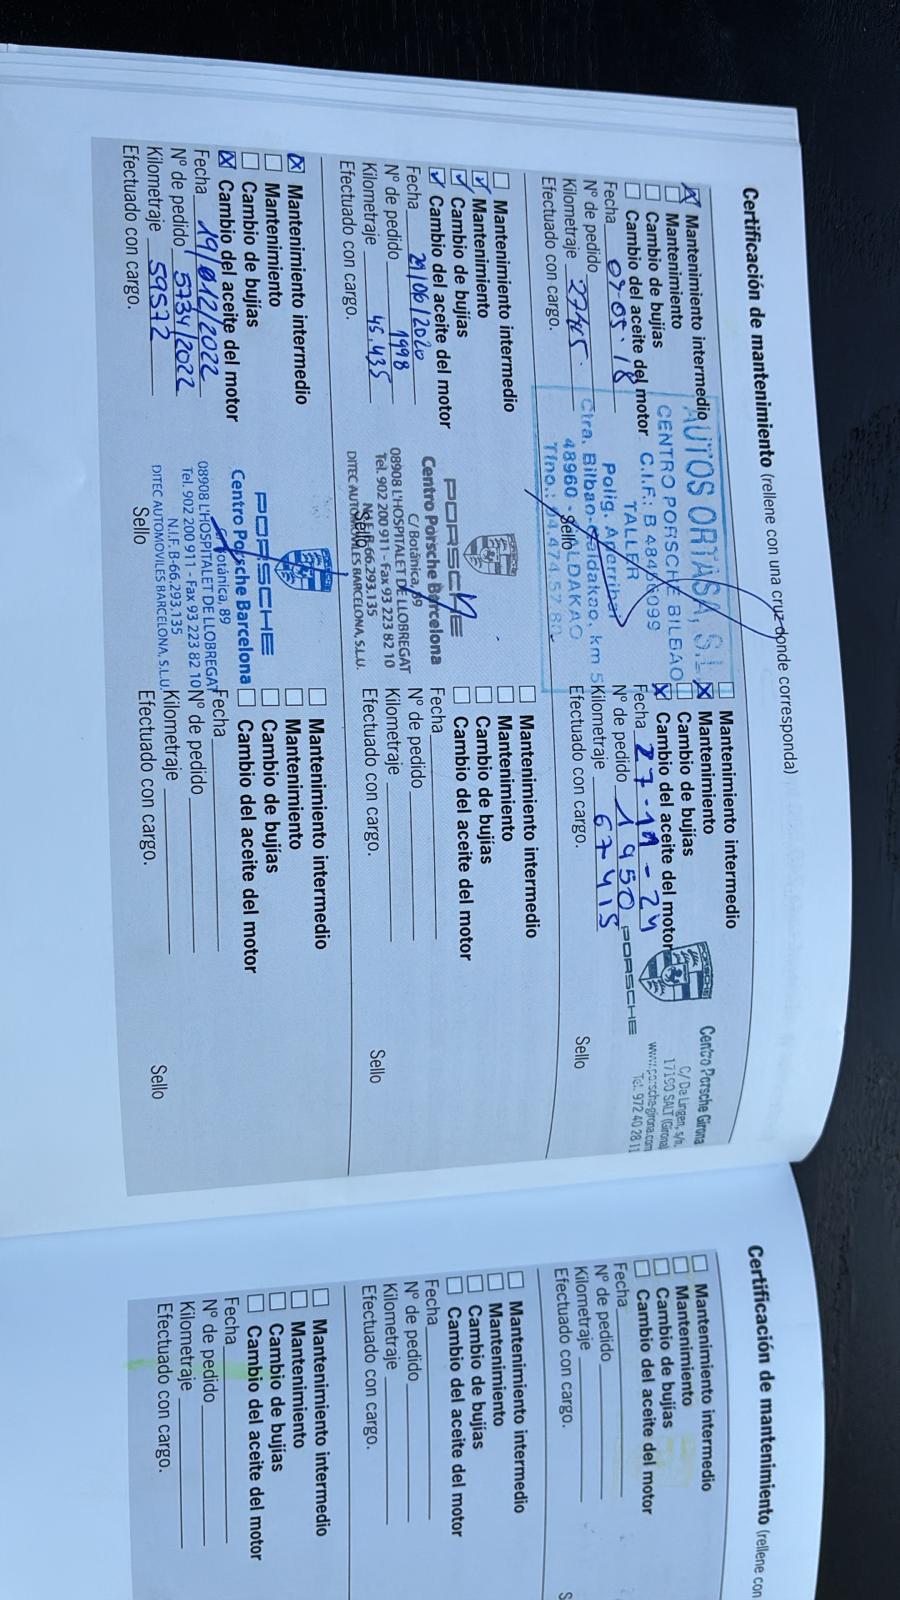 Certificación de mantenimiento (rellene con una cruz donde corresponda)
Mantenimiento intermedio
Mantenimiento
Cambio de bujías
Cambio del aceite del motor
Fecha 09-05-18
Nº de pedido
Kilometraje
Efectuado con cargo.
AUTOS ORTASA, S.L.
CENTRO PORSCHE BILBAO
C.I.F.: B
TALLER
Polig.
Ctra. Bilbao-Galdakao, km 5
48960 - GALDAKAO
Tfno.:
Sello
Mantenimiento intermedio
Mantenimiento
Cambio de bujías
Cambio del aceite del motor
Fecha 21/06/2020
Nº de pedido 1998
Kilometraje 45.435
Efectuado con cargo.
PORSCHE
Centro Porsche Barcelona
C/ Botánica, 89
08908 L'HOSPITALET DE LLOBREGAT
Tel. 902 200 911 - Fax 93 223 82 10
N.I.F. B-66.293.135
DITEC AUTOMOVILES BARCELONA, S.L.U.
Sello
Mantenimiento intermedio
Mantenimiento
Cambio de bujías
Cambio del aceite del motor
Fecha
Nº de pedido 5734/2022
Kilometraje 59572
Efectuado con cargo.
PORSCHE
Centro Porsche Barcelona
Botánica, 89
08908 L'HOSPITALET DE LLOBREGAT
Tel. 902 200 911 - Fax 93 223 82 10
N.I.F. B-66.293.135
DITEC AUTOMOVILES BARCELONA, S.L.U.
Sello
Mantenimiento intermedio
Mantenimiento
Cambio de bujías
Cambio del aceite del motor
Fecha 27-11-24
Nº de pedido 1950
Kilometraje 67415
Efectuado con cargo.
PORSCHE
PORSCHE
Centro Porsche Girona
C/ Da Lingen, s/n.
17190 SALT (Girona)
www.porsche-girona.com
Tel. 972 40 28 11
Sello
Mantenimiento intermedio
Mantenimiento
Cambio de bujías
Cambio del aceite del motor
Fecha
Nº de pedido
Kilometraje
Efectuado con cargo.
Sello
Mantenimiento intermedio
Mantenimiento
Cambio de bujías
Cambio del aceite del motor
Fecha
Nº de pedido
Kilometraje
Efectuado con cargo.
Sello
Certificación de mantenimiento (rellene con
Mantenimiento intermedio
Mantenimiento
Cambio de bujías
Cambio del aceite del motor
Fecha
Nº de pedido
Kilometraje
Efectuado con cargo.
S
Mantenimiento intermedio
Mantenimiento
Cambio de bujías
Cambio del aceite del motor
Fecha
Nº de pedido
Kilometraje
Efectuado con cargo.
Mantenimiento intermedio
Mantenimiento
Cambio de bujías
Cambio del aceite del motor
Fecha
Nº de pedido
Kilometraje
Efectuado con cargo.